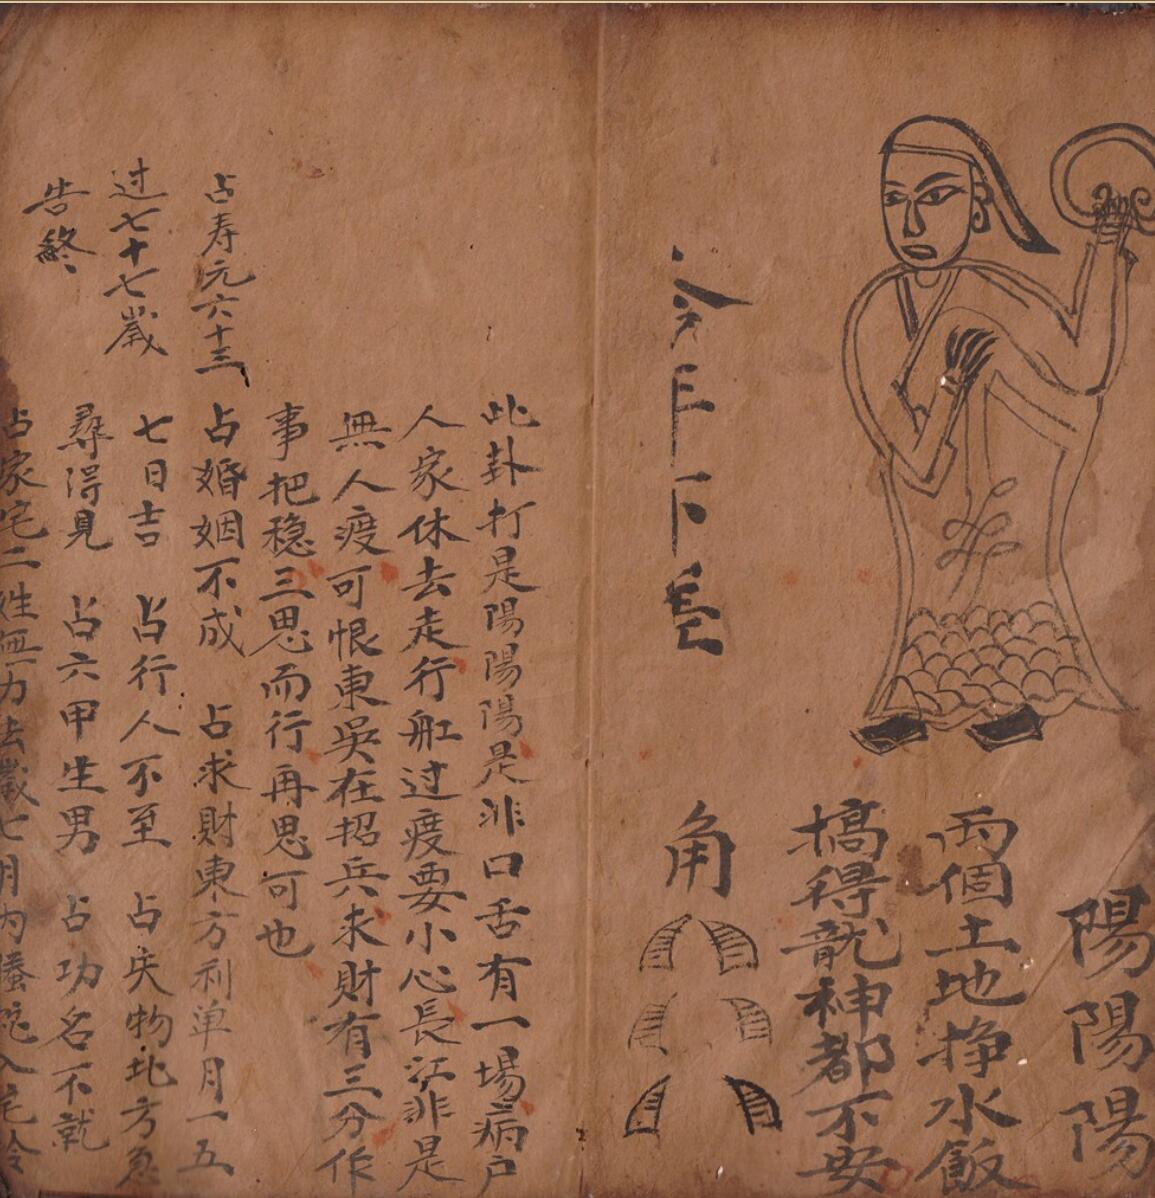 陽陽陽
兩個土地挣水飯
搞得龍神都不安
角
此卦打是陽陽陽是非口舌有一場病户
人家休去走行舡过渡要小心長江非是
無人渡可恨東吳在招兵求財有三分作
事把稳三思而行再思可也
占寿元六十三
占婚姻不成 占求財東方利单月一五
过七十七歲
七日吉 占行人不至 占失物北方急
告終
尋得見 占六甲生男 占功名不就
占家宅二姓無力去歲七月内